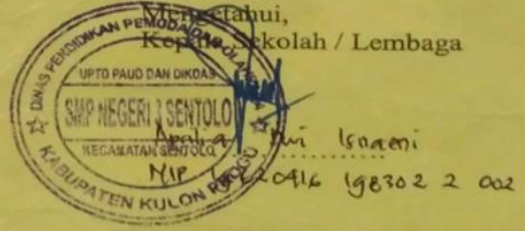 Mengetahui,
Kepala Sekolah / Lembaga
DINAS PENDIDIKAN PEMUDA DAN OLAHRAGA
UPTD PAUD DAN DIKDAS
SMP NEGERI 3 SENTOLO
KECAMATAN SENTOLO
KABUPATEN KULON PROGO
Dwi Isnaeni
NIP 198302 2 002